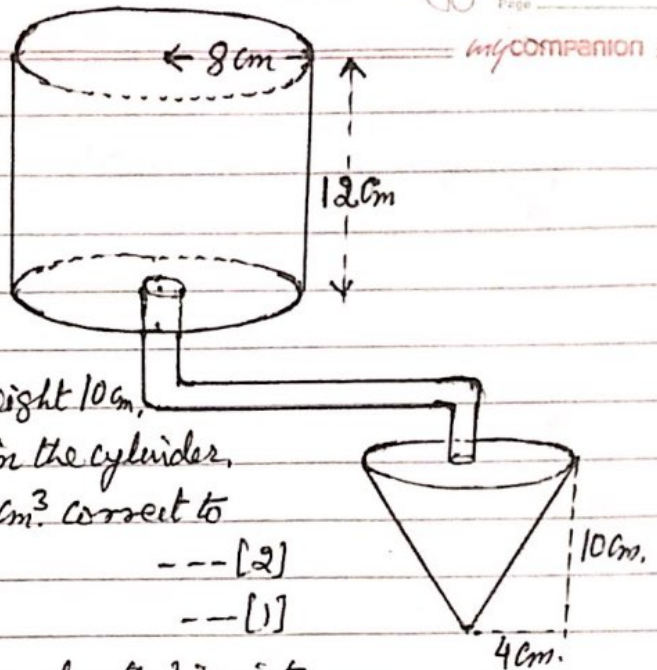 Page
mycompanion
8 cm
12 cm
eight 10 cm,
in the cylinder,
cm³. correct to
--- [2]
--- [1]
10 cm.
4 cm.